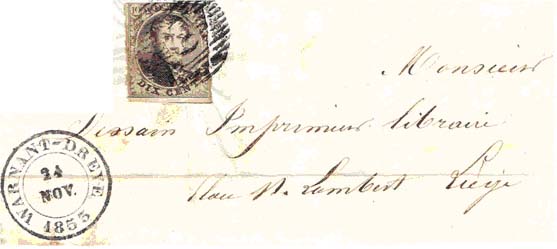 DIX CENTS
Monsieur
Dessain Imprimeur libraire
Place St. Lambert Liège
WARNANT-DREYE
24
NOV.
1853